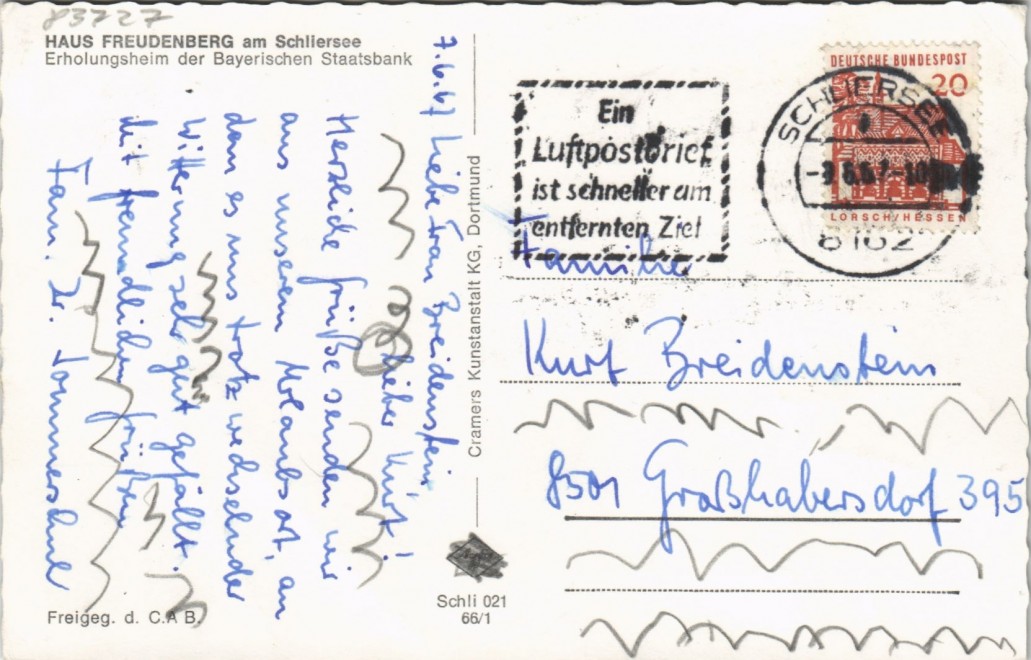 83727
HAUS FREUDENBERG am Schliersee
Erholungsheim der Bayerischen Staatsbank
7.6.67 Liebe Frau Breidenstein
Lieber Kurt!
Herzliche Grüße senden wir
aus unserem Urlaubsort, an
dem es uns trotz wechselnder
Witterung sehr gut gefällt.
Mit freundlichen Grüßen
Fam. Dr.
Freigeg. d. C.A B.
Cramers Kunstanstalt KG, Dortmund
Schli 021
66/1
Ein
Luftpostbrief
ist schneller am
entfernten Ziel
SCHLIERSEE
8162
DEUTSCHE BUNDESPOST
20
LORSCH/HESSEN
Familie
Kurt Breidenstein
8501 Großhabersdorf 395